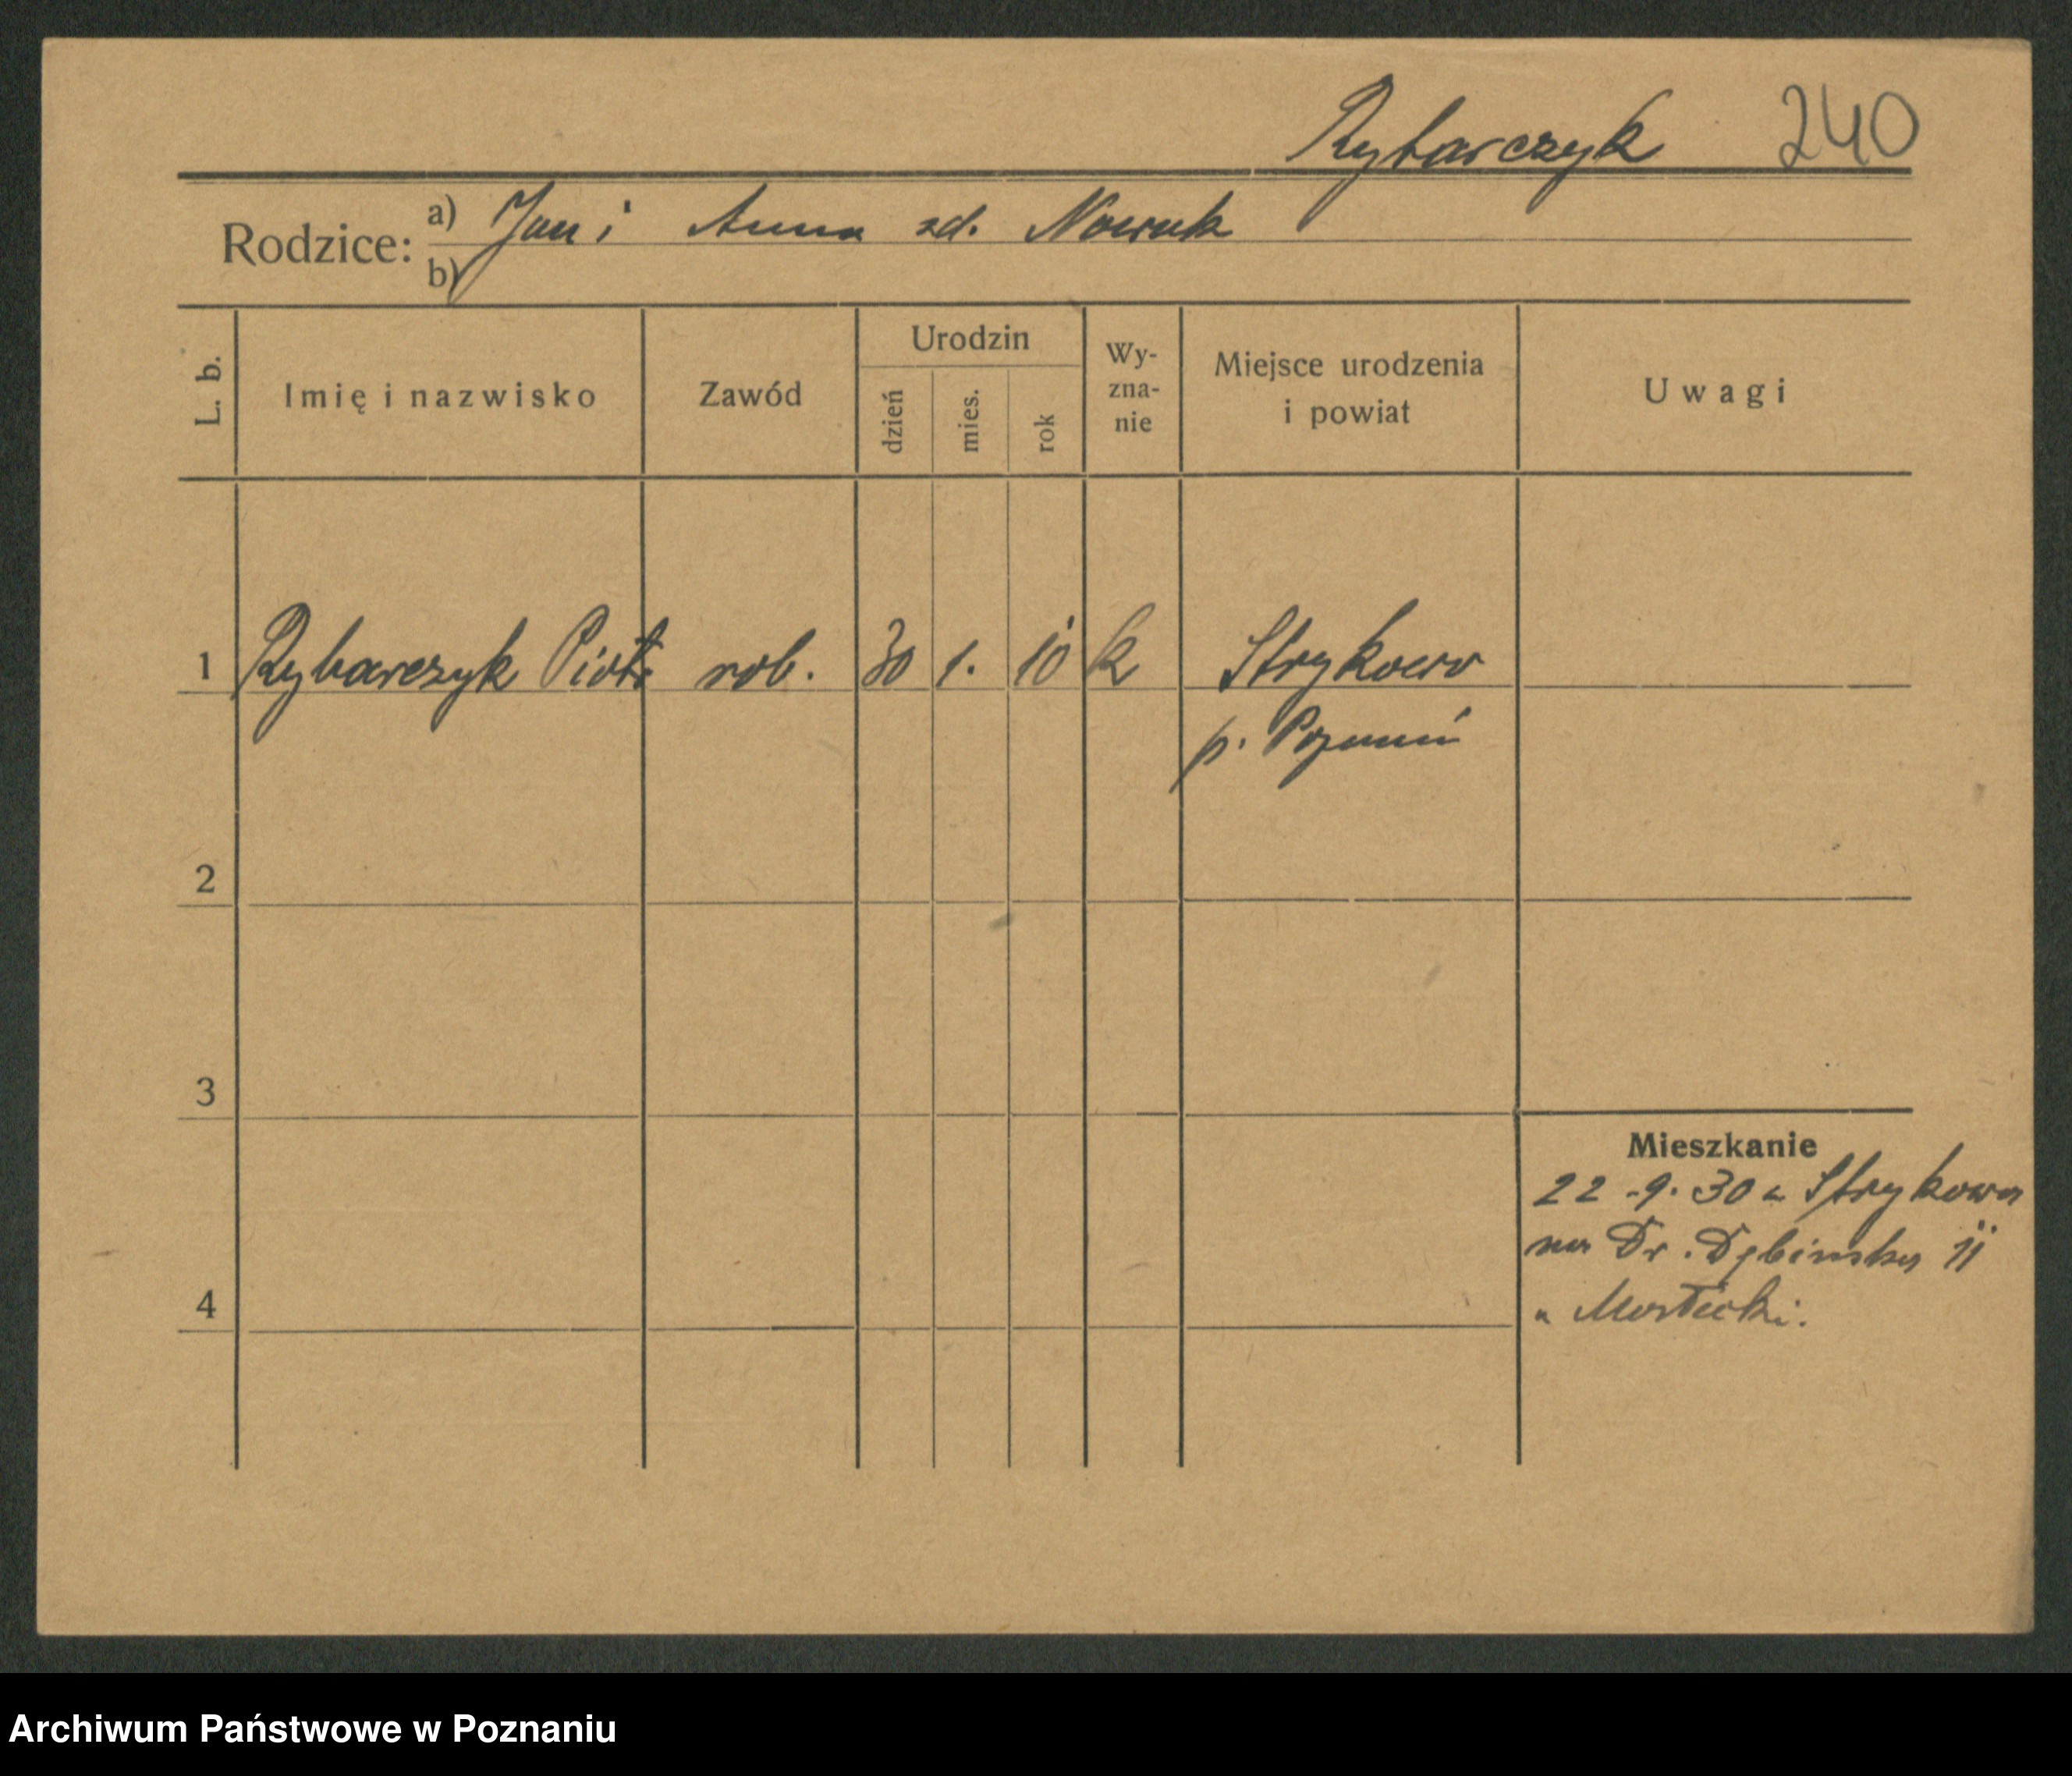 Rybarczyk 240
Rodzice: a) Jan i Anna zd. Nowak
b)
L. b. Imię i nazwisko Zawód Urodzin dzień mies. rok Wy-zna-nie Miejsce urodzenia i powiat Uwagi
1 Rybarczyk Piotr rob. 30 1. 10 k Strykowo
p. Poznań
2
3
Mieszkanie
22.9.30 z Strykowa
na Dr. Dębińska 11
4
Archiwum Państwowe w Poznaniu